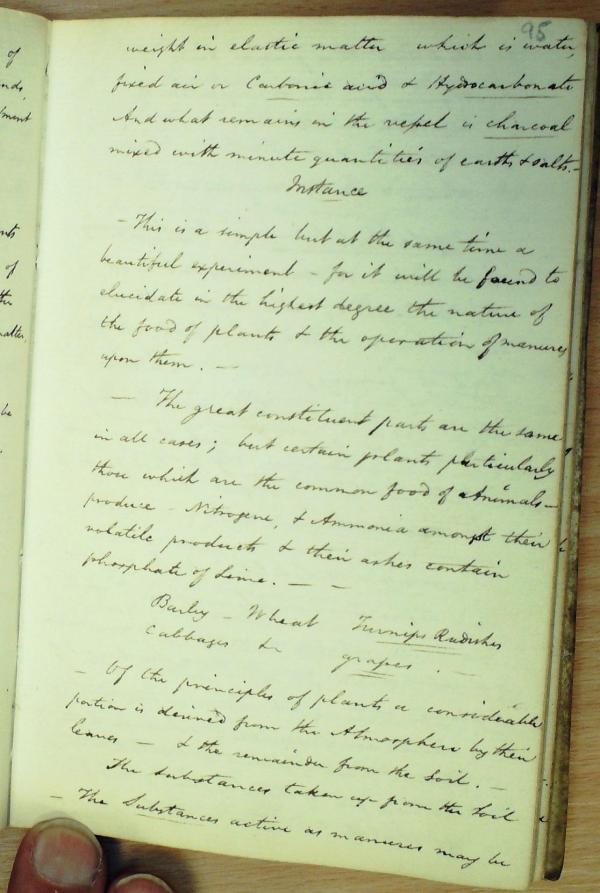 95
weight in elastic matter which is water,
fixed air or Carbonic acid & Hydrocarbonate
And what remains in the vessel is charcoal
mixed with minute quantities of earths & salts.-
Instance
- This is a simple but at the same time a
beautiful experiment - for it will be found to
elucidate in the highest degree the nature of
the food of plants & the operation of manures
upon them. -
- The great constituent parts are the same
in all cases; but certain plants particularly
those which are the common food of Animals -
produce - Nitrogene, & Ammonia amongst their
volatile products & their ashes contain
phosphate of Lime. - -
Barley - Wheat Turnips Radishes
Cabbages &c grapes. -
- Of the principles of plants a considerable
portion is derived from the Atmosphere by their
leaves - & the remainder from the Soil. -
The substances taken up from the Soil
- The Substances active as manures may be